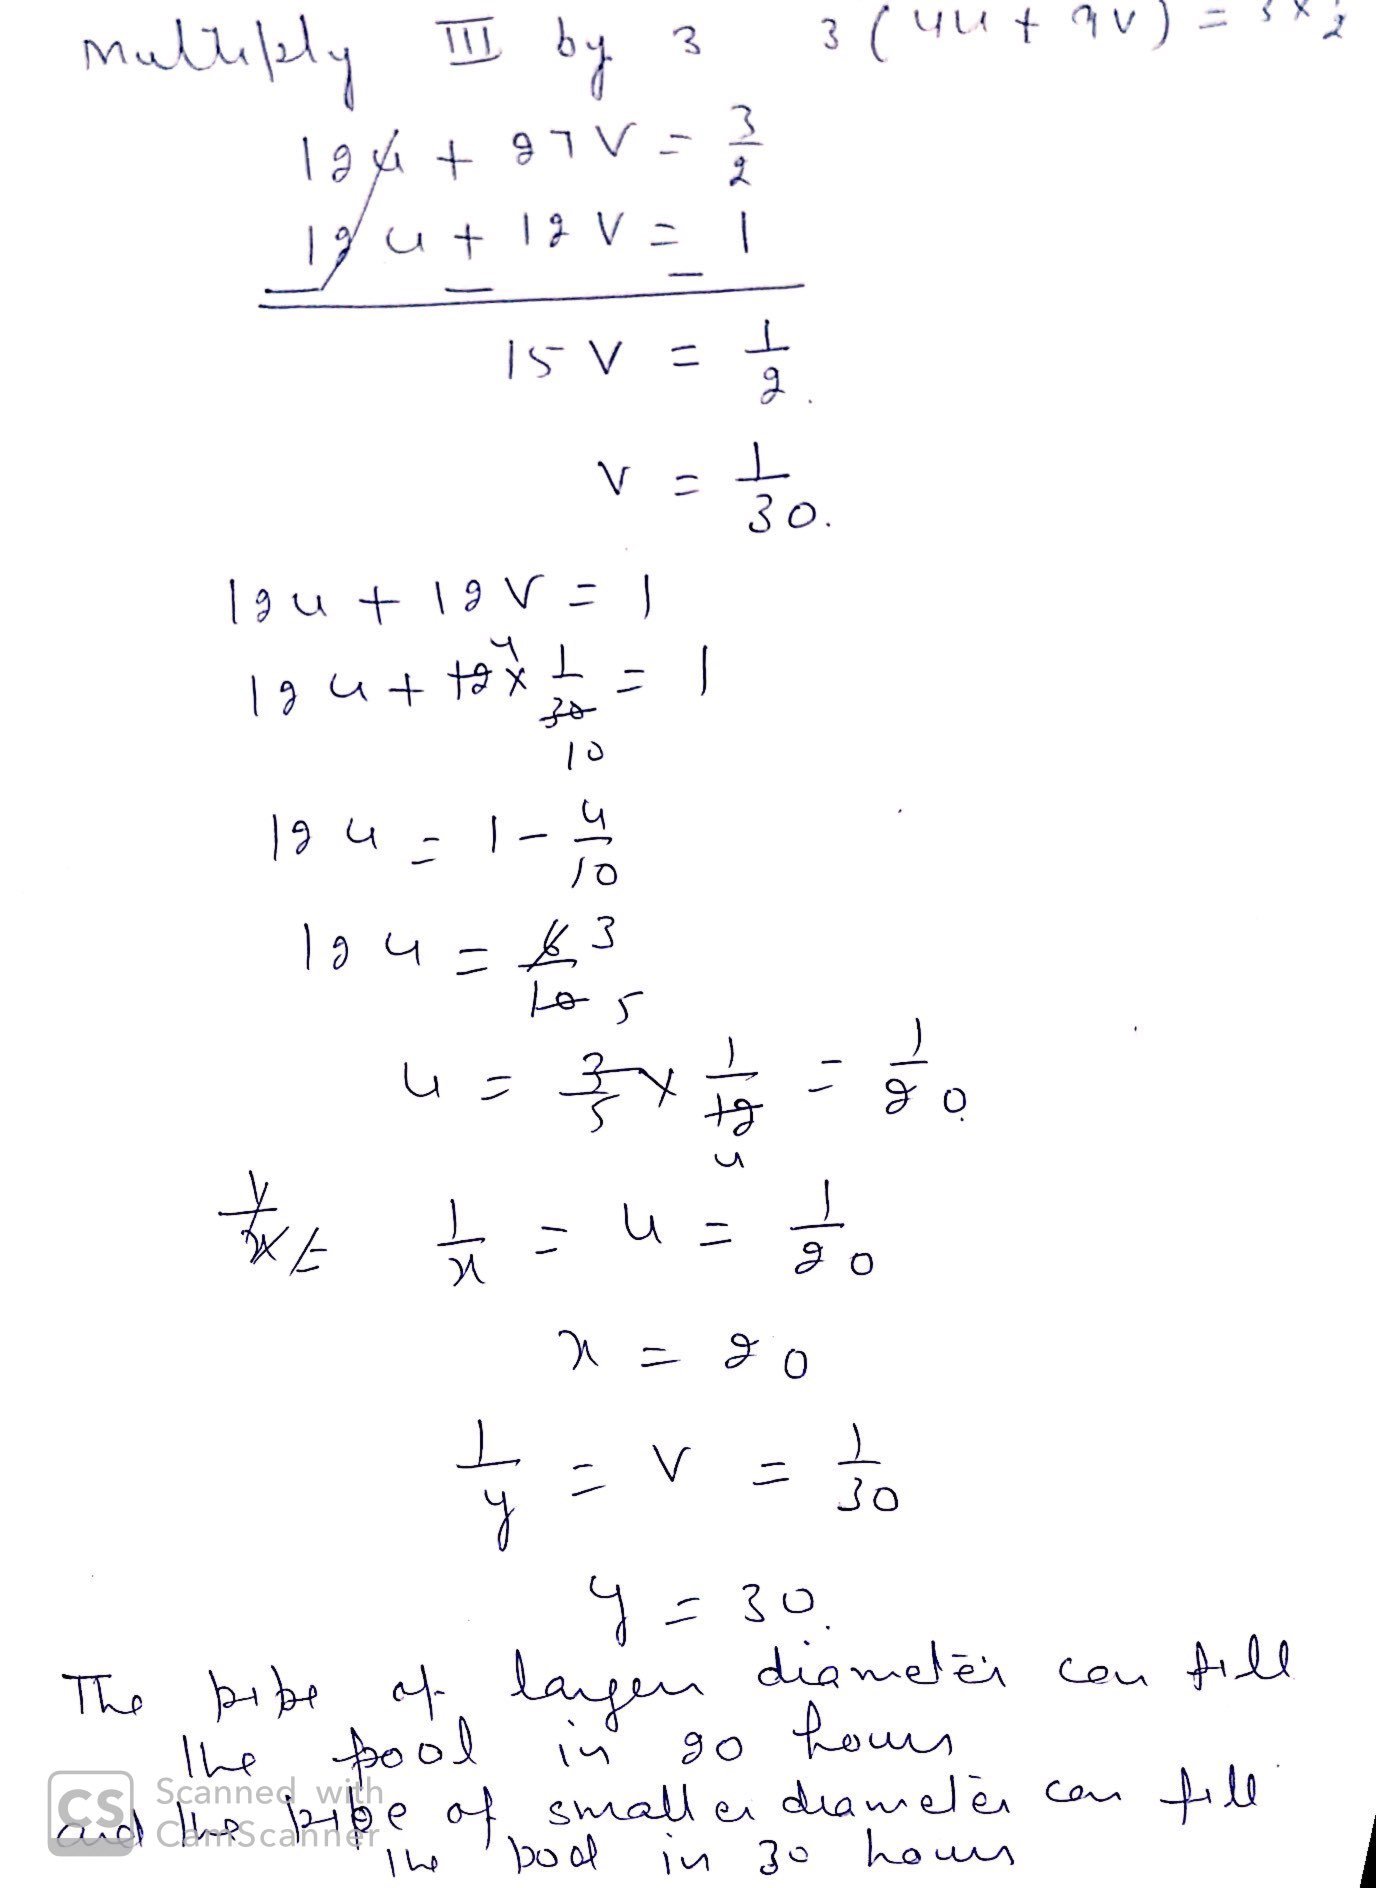 Multiply III by 3 3(4u + 9v) = 3 × 1/2
12u + 27v = 3/2
12u + 12v = 1
15v = 1/2.
v = 1/30.
12u + 12v = 1
12u + 12 4 × 1/30 = 1
10
12u = 1 - 4/10
12u = 6/10 3/5
u = 3/5 × 1/12 = 1/20.
4
1/x = 1/x = u = 1/20
x = 20
1/y = v = 1/30
y = 30.
The pipe of larger diameter can fill
the pool in 20 hours
Scanned with
CS CamScanner
and the pipe of smaller diameter can fill
the pool in 30 hours